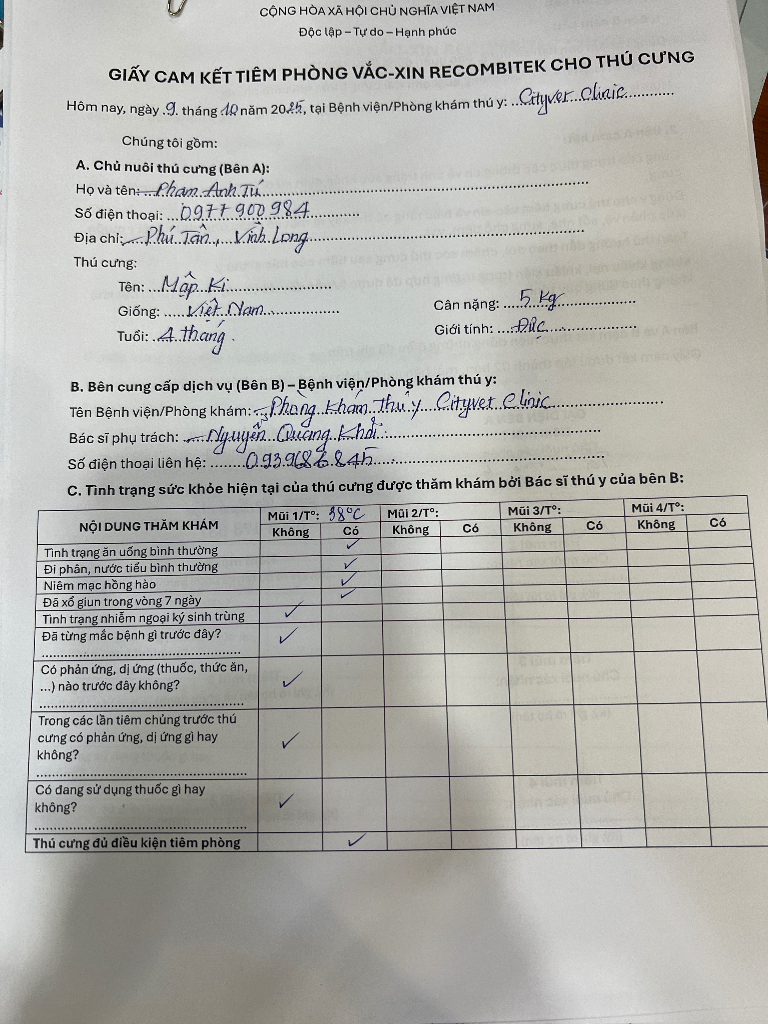 CỘNG HÒA XÃ HỘI CHỦ NGHĨA VIỆT NAM
Độc lập – Tự do – Hạnh phúc
GIẤY CAM KẾT TIÊM PHÒNG VẮC-XIN RECOMBITEK CHO THÚ CƯNG
Hôm nay, ngày .9. tháng 10 năm 2025, tại Bệnh viện/Phòng khám thú y: Cityvet Clinic
Chúng tôi gồm:
A. Chủ nuôi thú cưng (Bên A):
Họ và tên: Phạm Anh Tú
Số điện thoại: 0977900984
Địa chỉ: Phú Tân, Vĩnh Long
Thú cưng:
Tên: Mập Ki
Giống: Việt Nam Cân nặng: 5 kg
Tuổi: 4 tháng. Giới tính: Đực
B. Bên cung cấp dịch vụ (Bên B) – Bệnh viện/Phòng khám thú y:
Tên Bệnh viện/Phòng khám: Phòng Khám Thú y Cityvet Clinic
Bác sĩ phụ trách: Nguyễn Quang Khải
Số điện thoại liên hệ:
C. Tình trạng sức khỏe hiện tại của thú cưng được thăm khám bởi Bác sĩ thú y của bên B:
NỘI DUNG THĂM KHÁM Mũi 1/T°: 38°C Mũi 2/T°: Mũi 3/T°: Mũi 4/T°:
Không Có Không Có Không Có Không Có
Tình trạng ăn uống bình thường ✓
Đi phân, nước tiểu bình thường ✓
Niêm mạc hồng hào ✓
Đã xổ giun trong vòng 7 ngày ✓
Tình trạng nhiễm ngoại ký sinh trùng ✓
Đã từng mắc bệnh gì trước đây? ✓
Có phản ứng, dị ứng (thuốc, thức ăn,
...) nào trước đây không? ✓
Trong các lần tiêm chủng trước thú
cưng có phản ứng, dị ứng gì hay ✓
không?
Có đang sử dụng thuốc gì hay ✓
không?
Thú cưng đủ điều kiện tiêm phòng ✓